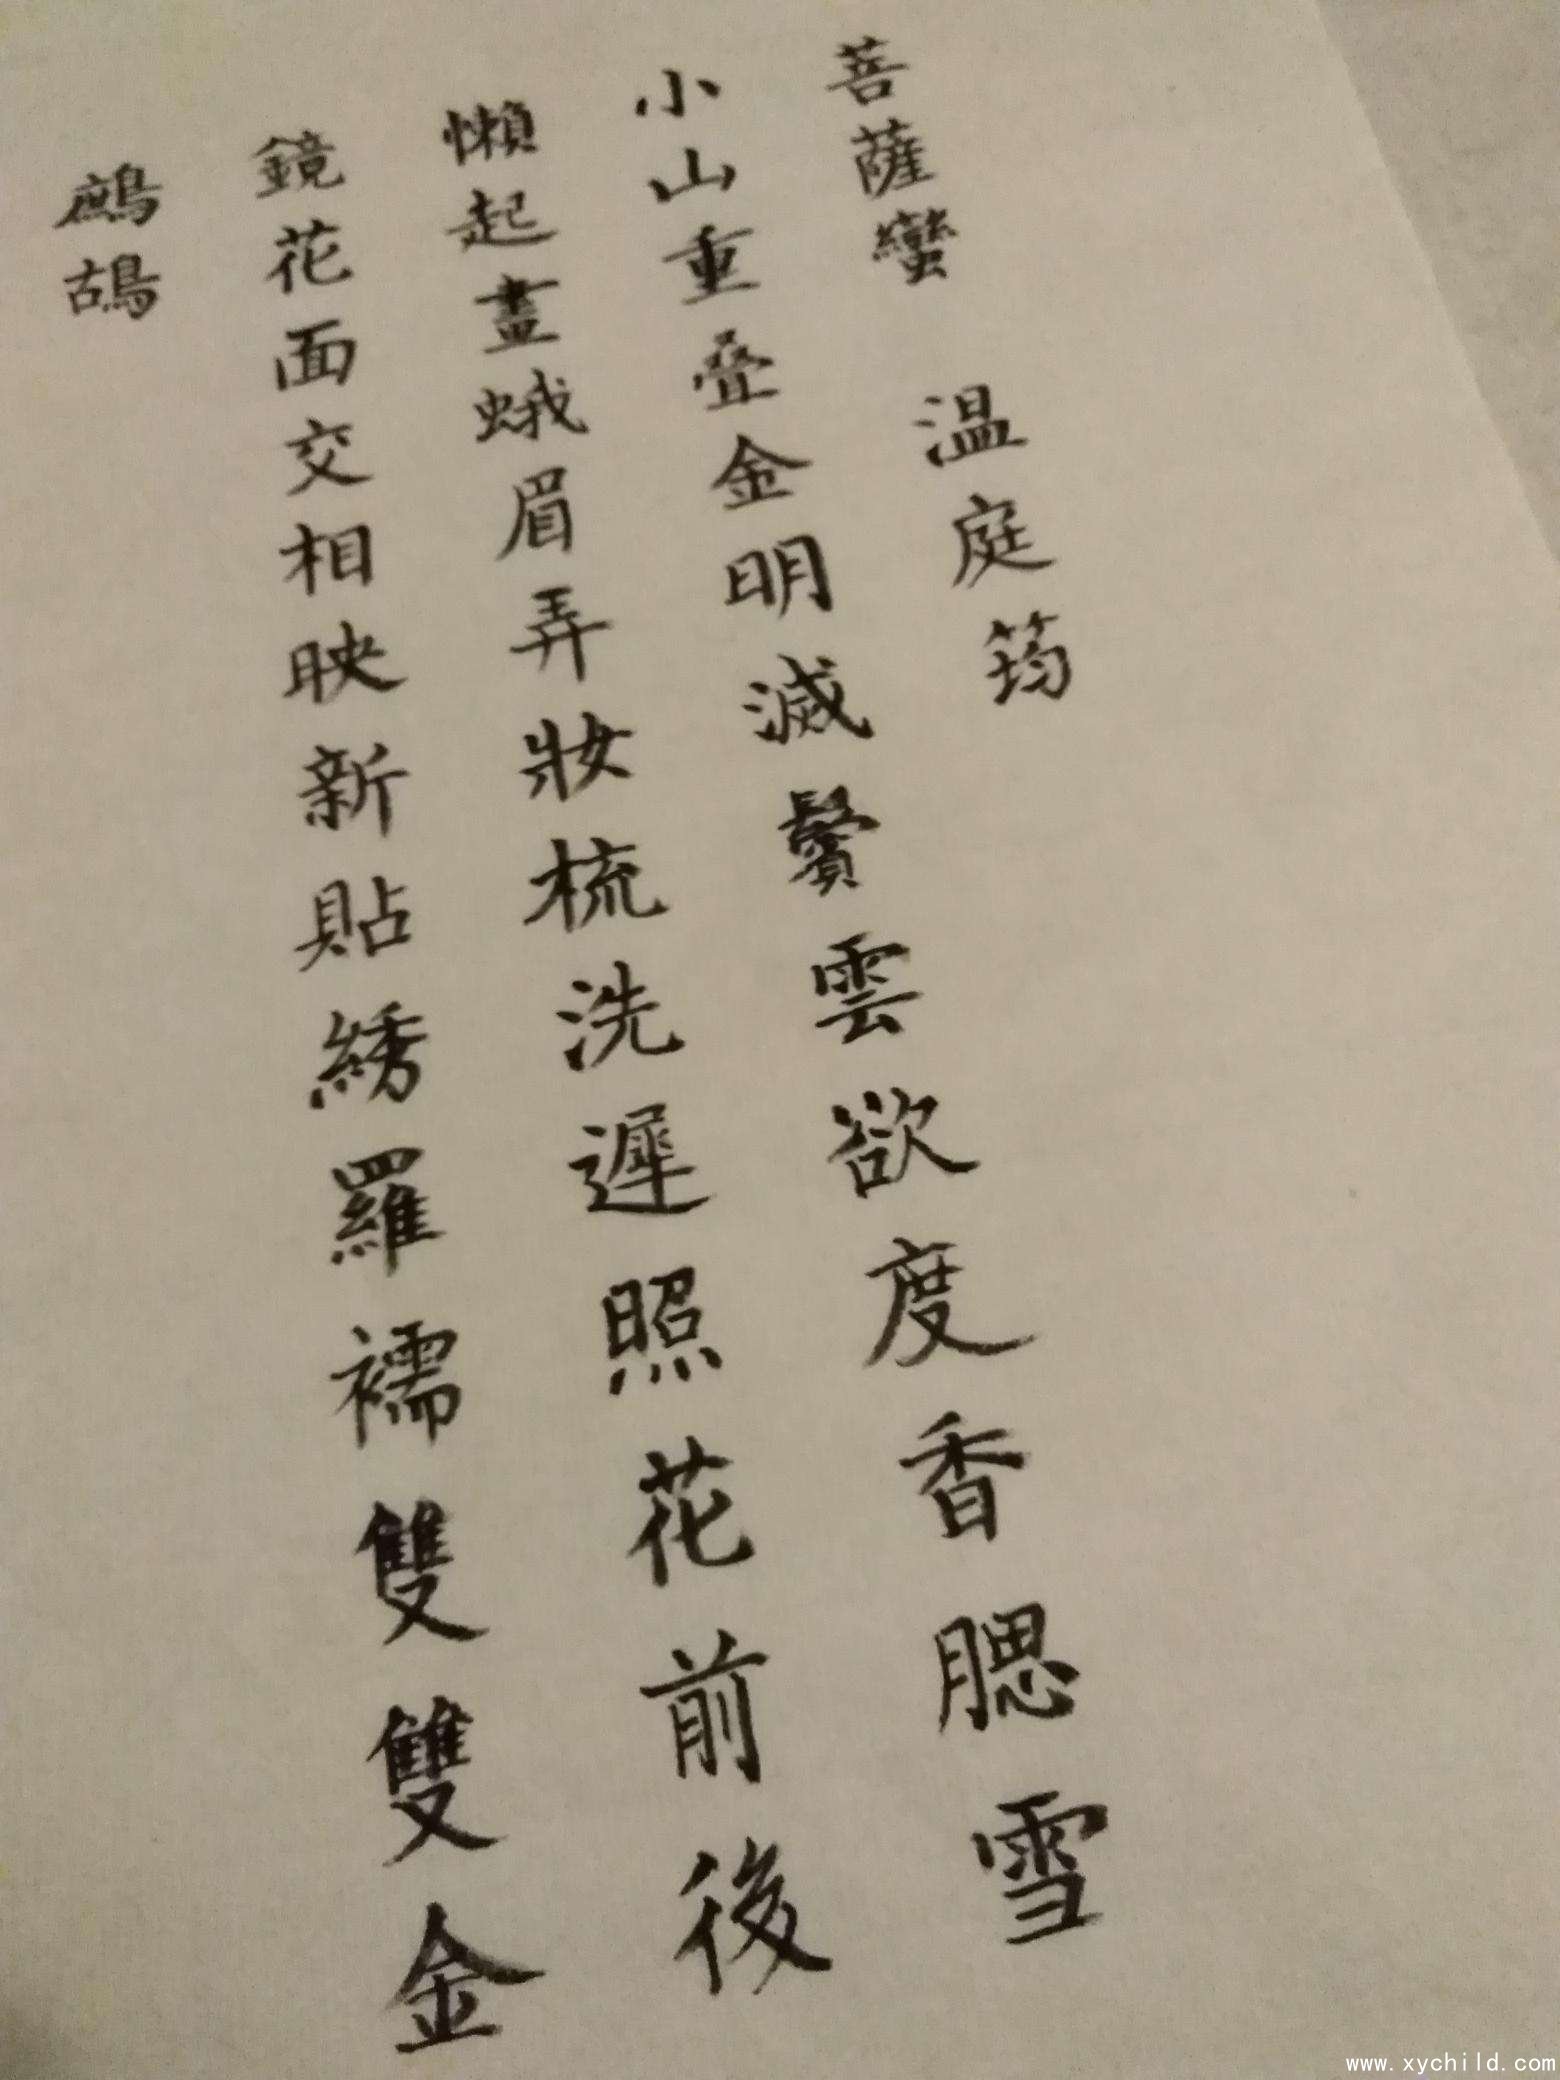 菩薩蠻 溫庭筠
小山重疊金明滅鬢雲欲度香腮雪
懶起畫蛾眉弄妝梳洗遲照花前後
鏡花面交相映新貼綉羅襦雙雙金
鷓鴣
www.xychild.com